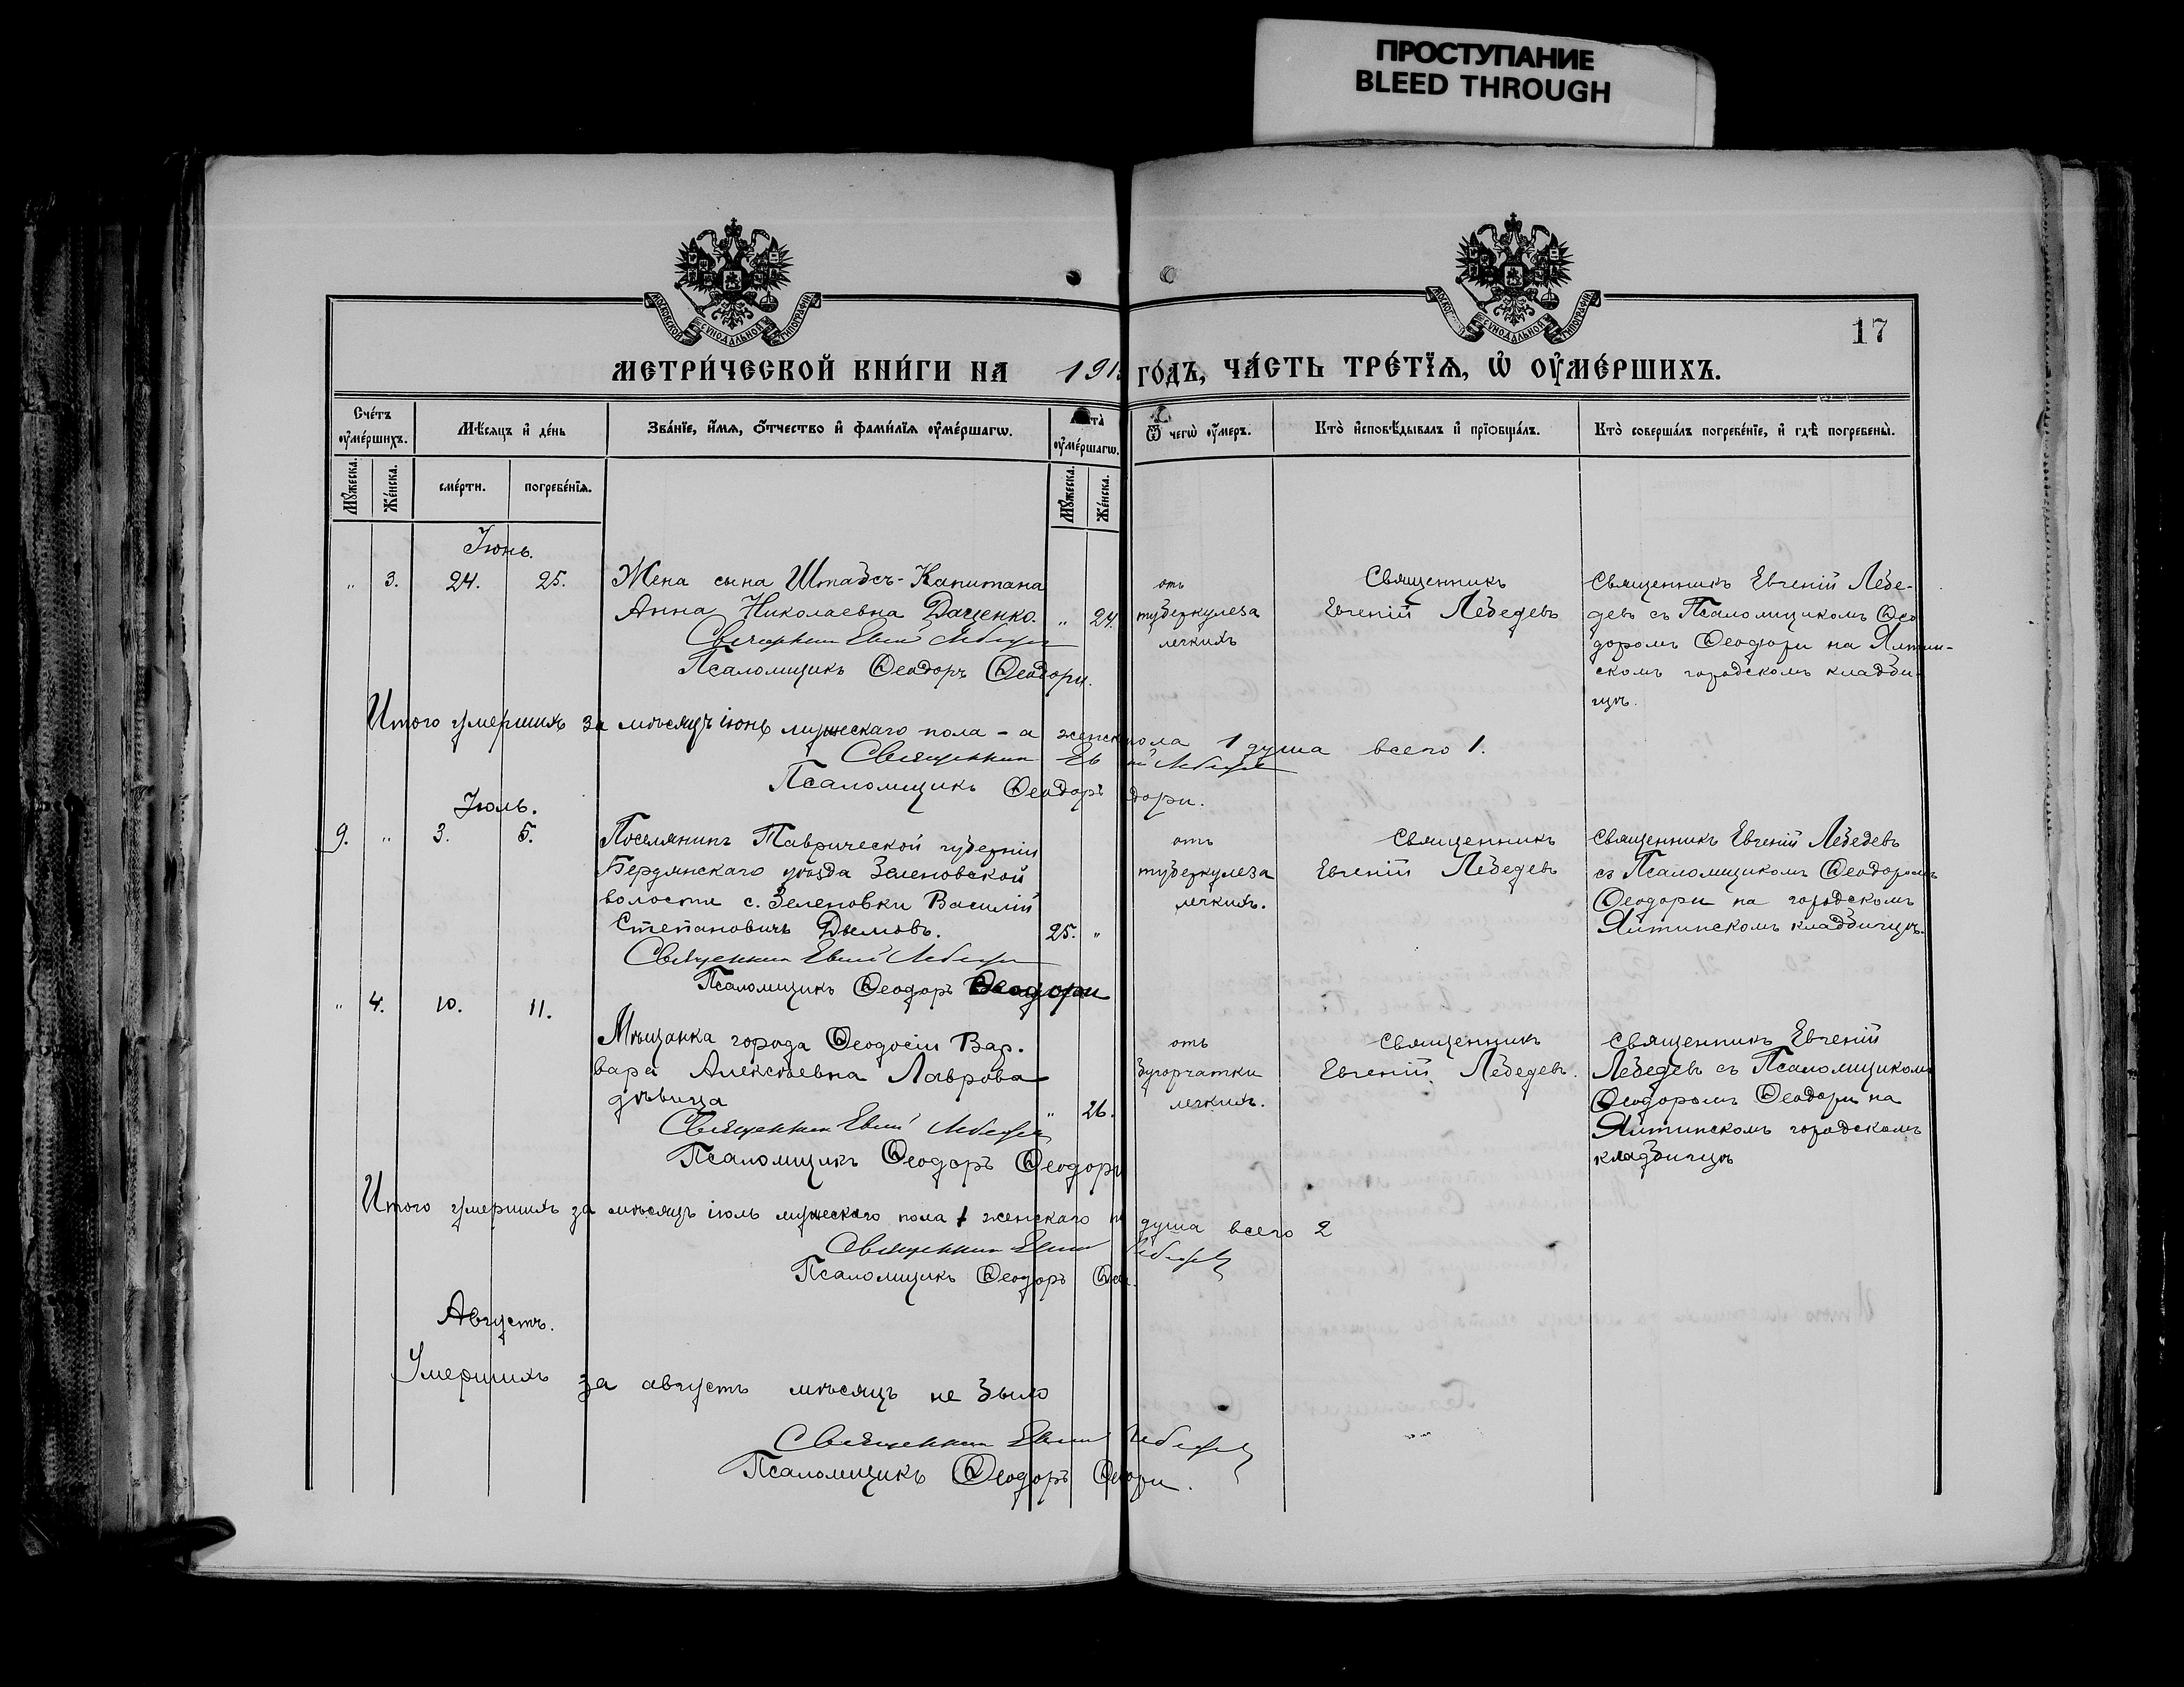 ПРОСТУПАНИЕ
BLEED THROUGH
МОСКОВСКОЙ СѴНОДАЛЬНОЙ ТИПОГРАФІИ
МОСКОВ СѴНОДАЛЬНОЙ ТИПОГРАФІИ
17
МЕТРИ́ЧЕСКОЙ КНИ́ГИ НА 191 ГО́ДЪ, ЧА́СТЬ ТРЕ́ТЇѦ, Ѡ҆ ОУ҆МЕ́РШИХЪ.
Сче́тъ оу҆ме́ршихъ.
Мѣ́сяцъ и҆ де́нь
Зва́нїе, и҆́мя, ѻ҆́тчество и҆ фами́лїя оу҆ме́ршагѡ.
Лѣта̀ оу҆ме́ршагѡ.
Ѿ чегѡ̀ оу҆́меръ.
Кто̀ и҆сповѣ́дывалъ и҆ прїѻбща́лъ.
Кто̀ соверша́лъ погребе́нїе, и҆ гдѣ̀ погребены̀.
Мꙋ́жеска. Же́нска. сме́рти. погребе́нїя. Мꙋ́жеска. Же́нска.
Іюнь.
" 3. 24. 25. Жена сына Штабсъ-Капитана
Анна Николаевна Даценко. " 24.
Священник Евгений Лебедев
Псаломщикъ Ѳеодоръ Ѳеодори.
отъ
туберкулеза
легкихъ
Священникъ
Евгеній Лебедевъ
Священникъ Евгеній Лебе-
девъ съ Псаломщикомъ Ѳео
доромъ Ѳеодори на Ялтин-
скомъ городскомъ кладби-
щѣ.
Итого умершихъ за мѣсяцъ іюнь мужескаго пола - а женск пола 1 душа всего 1.
Священник Ев ий Лебедев
Псаломщикъ Ѳеодоръ дори.
Іюль.
9. " 3. 5. Поселянинъ Таврической губерніи
Бердянскаго уѣзда Зеленовской
волости с. Зеленовки Василій
Степановичъ Дымовъ. 25. "
Священник Евгений Лебедев
Псаломщикъ Ѳеодоръ Ѳеодори
отъ
туберкулеза
легкихъ.
Священникъ
Евгеній Лебедевъ
Священникъ Евгеній Лебедевъ
съ Псаломщикомъ Ѳеодоромъ
Ѳеодори на городскомъ
Ялтинскомъ кладбищѣ.
" 4. 10. 11.
Мѣщанка города Ѳеодосіи Вар.
вара Алексѣевна Лаврова
дѣвица " 26.
Священник Евгений Лебедев
Псаломщикъ Ѳеодоръ Ѳеодори
отъ
бугорчатки
легкихъ.
Священникъ
Евгеній Лебедевъ.
Священникъ Евгеній
Лебедевъ съ Псаломщикомъ
Ѳеодоромъ Ѳеодори на
Ялтинскомъ городскомъ
кладбищѣ
Итого умершихъ за мѣсяцъ іюль мужескаго пола 1 женскаго п душа всего 2
Священник Евгений Лебедев
Псаломщикъ Ѳеодоръ Ѳео.
Августъ.
Умершихъ за августъ мѣсяцъ не было
Священник Евгений Лебедев
Псаломщикъ Ѳеодоръ Ѳе ори.